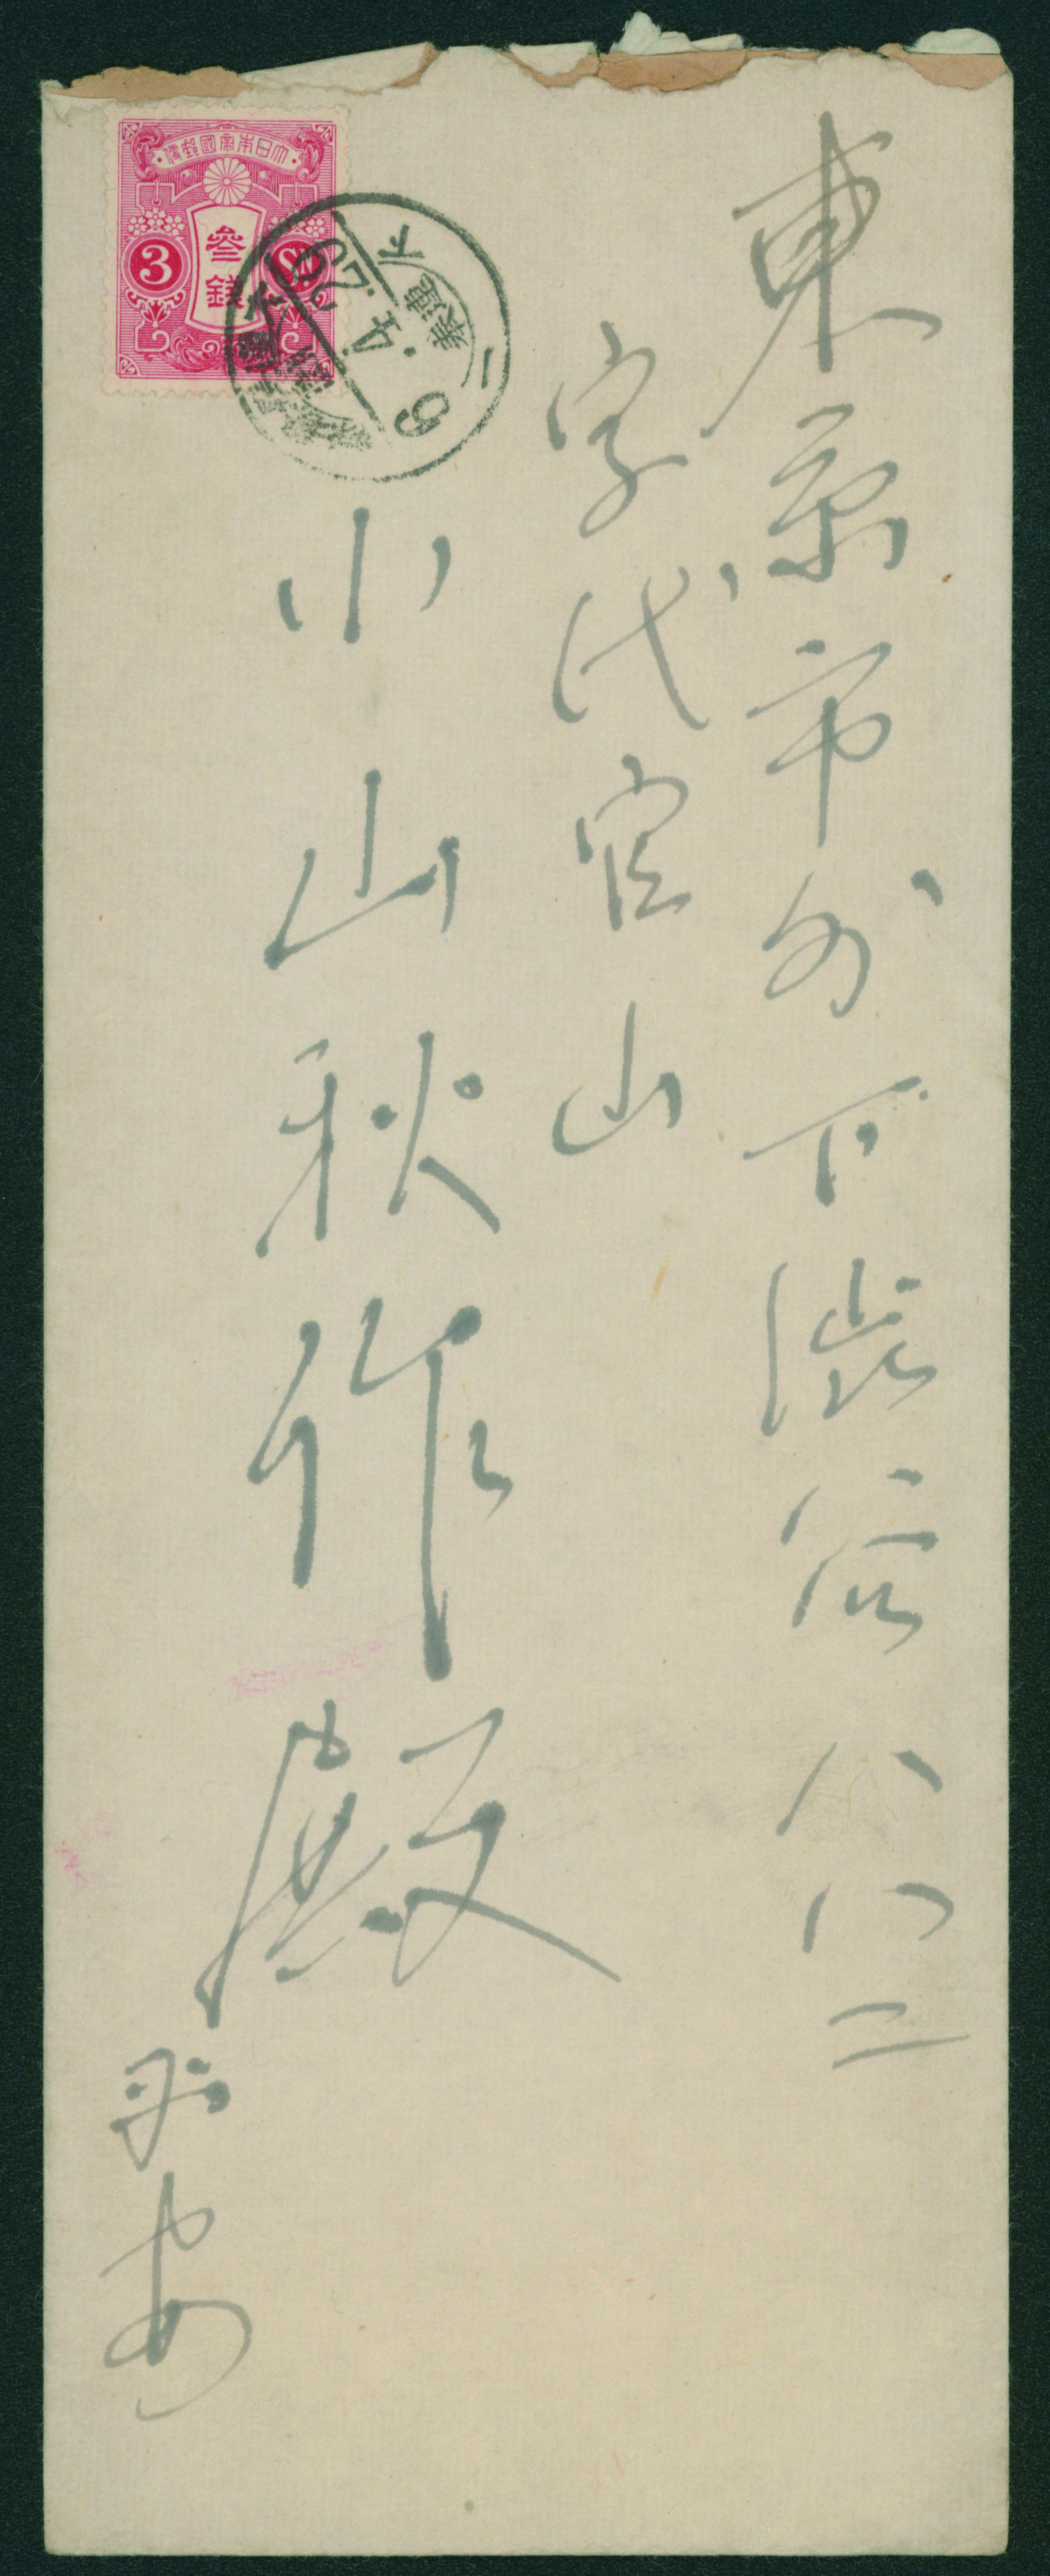 東京市外下渋谷八八二
字代官山
小山秋作殿
大日本帝國郵便
參錢
3
大連
9.4.26